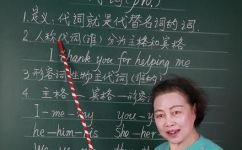 1.定义:代词就是代替名词的词.
2.人称代词(谁)分为主格和宾格
I thank you for helping me
3.形容词性物主代词(谁的)
4.主格 宾格 形容
I-me-my you-y
he-him-his she